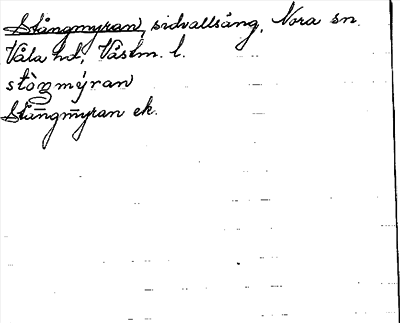 Stångmyran, sidvallsäng, Nora sn.
Våla hd, Västm. l.
stòŋmýran
Stångmyran ek.